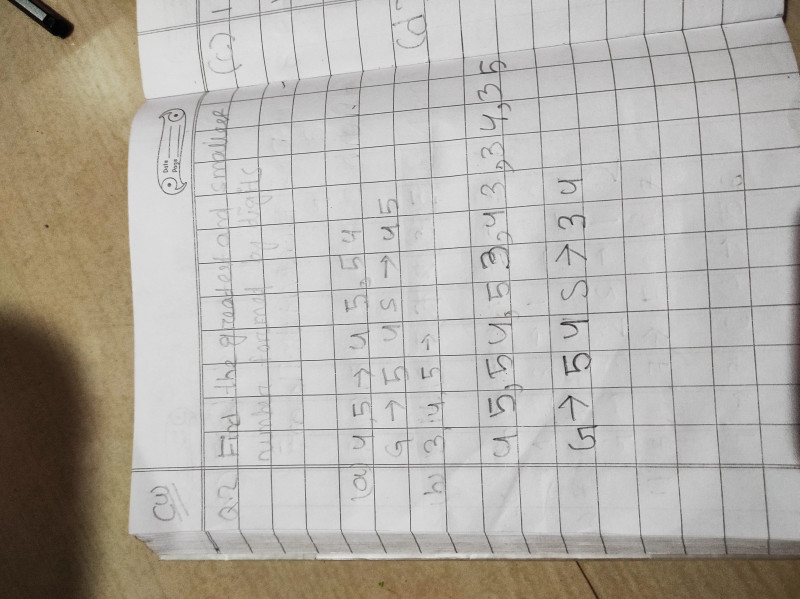 (4)
Date
Page
Q2 Find the greatest and smallest
number formed by digits
(a) 4,5 → 45,54
G → 54 S → 45
b) 3,4,5 →
45,54,53,43,34,35
G → 54 S → 34
(c)
(d)